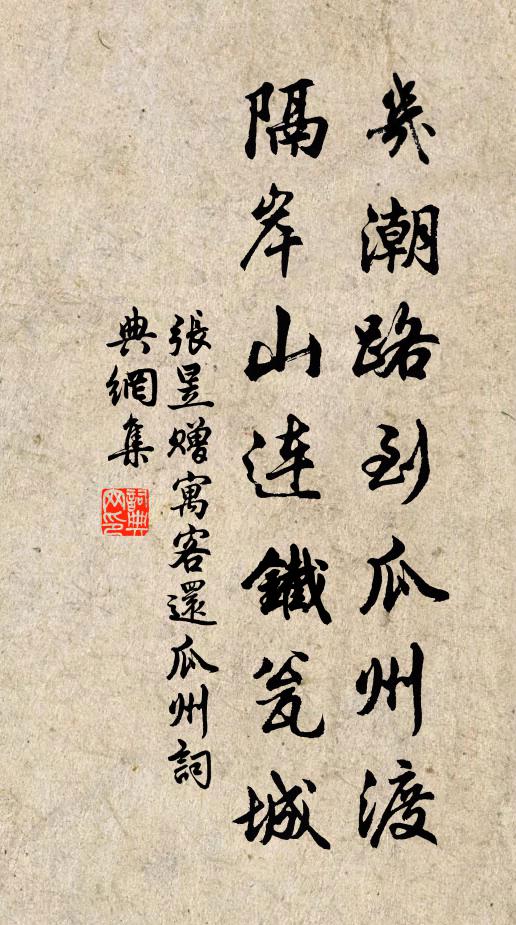 幾潮路到瓜州渡
隔岸山連鐵瓮城
張昱赠寓客還瓜州詞
典網集
詞典网印